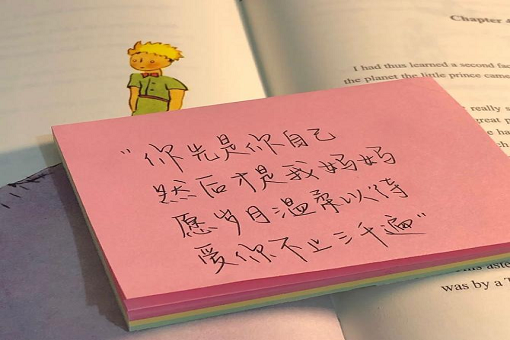 Chapter 4
I had thus learned a second fac
the planet the little prince came
really s
great p
"你先是你自己
然后才是我妈妈
愿岁月温柔以待
爱你不止三千遍"
was by a T